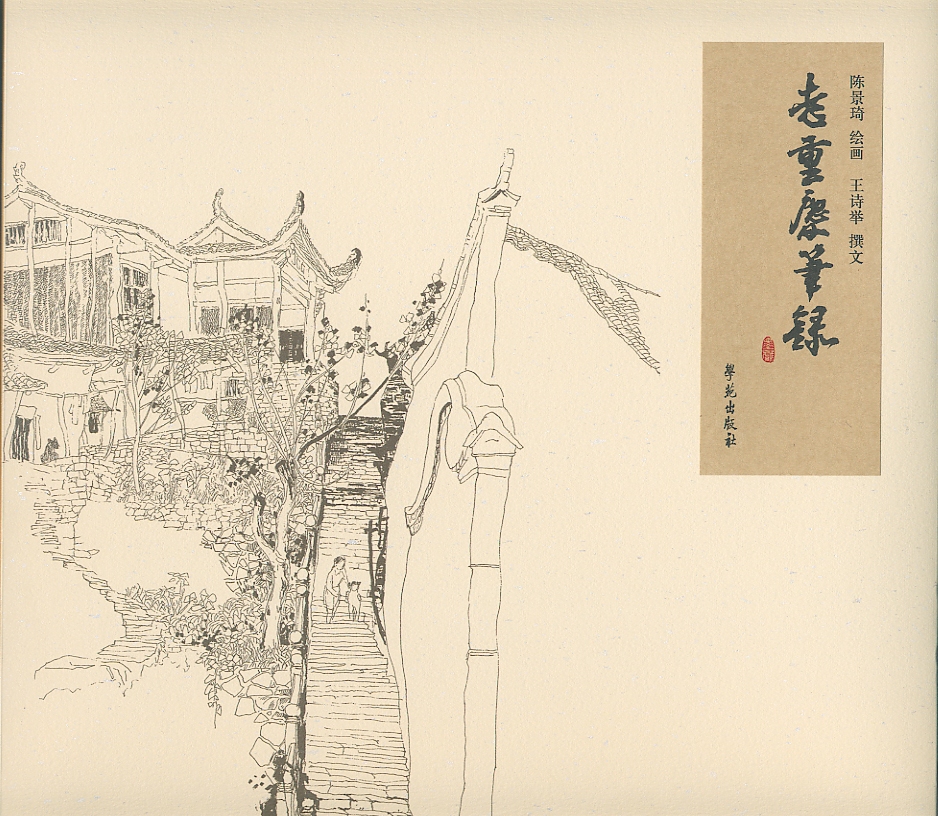 陈景琦 绘画 王诗举 撰文
老重慶筆録
學苑出版社